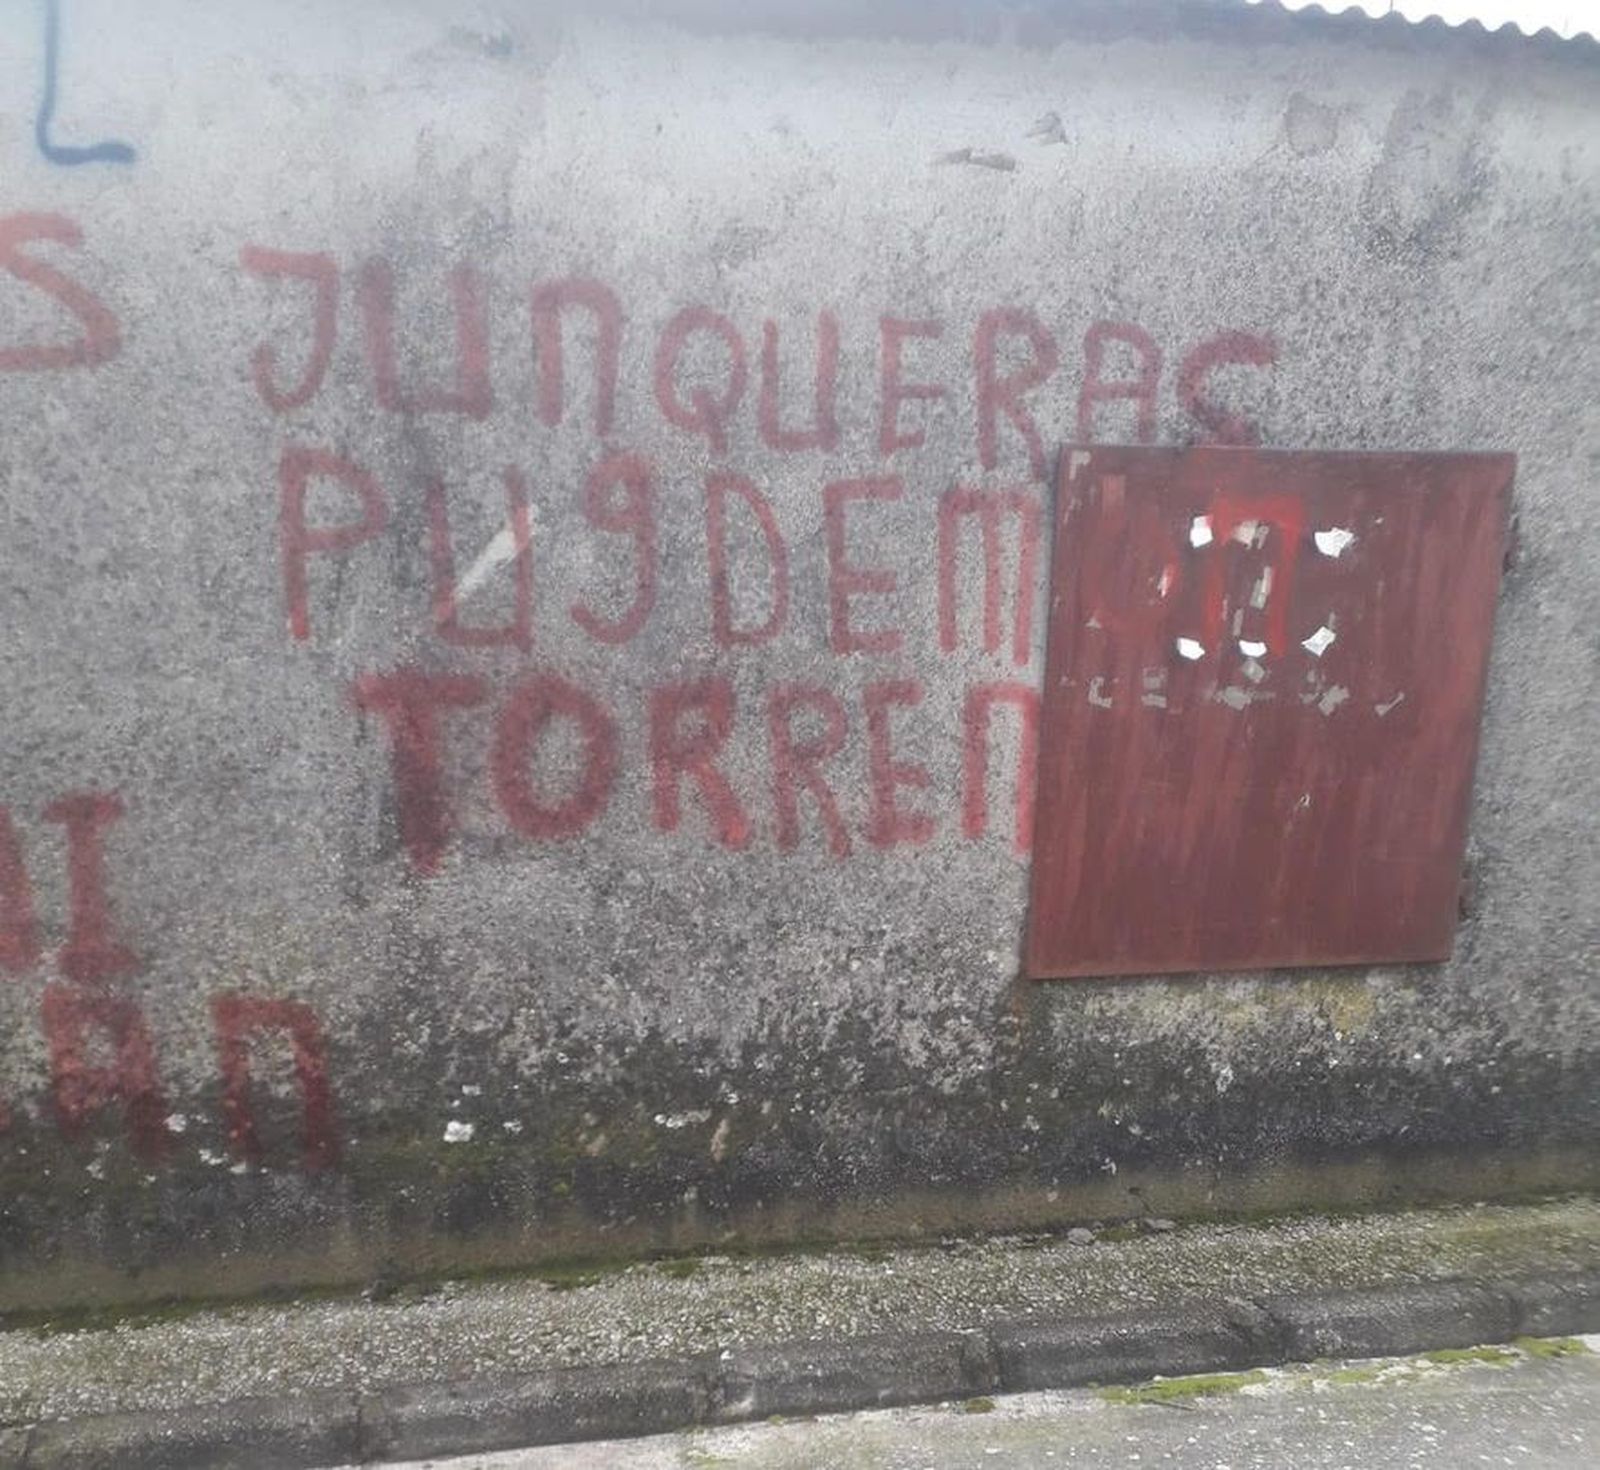 S JUNQUERAS
PUGDEM
TORREN